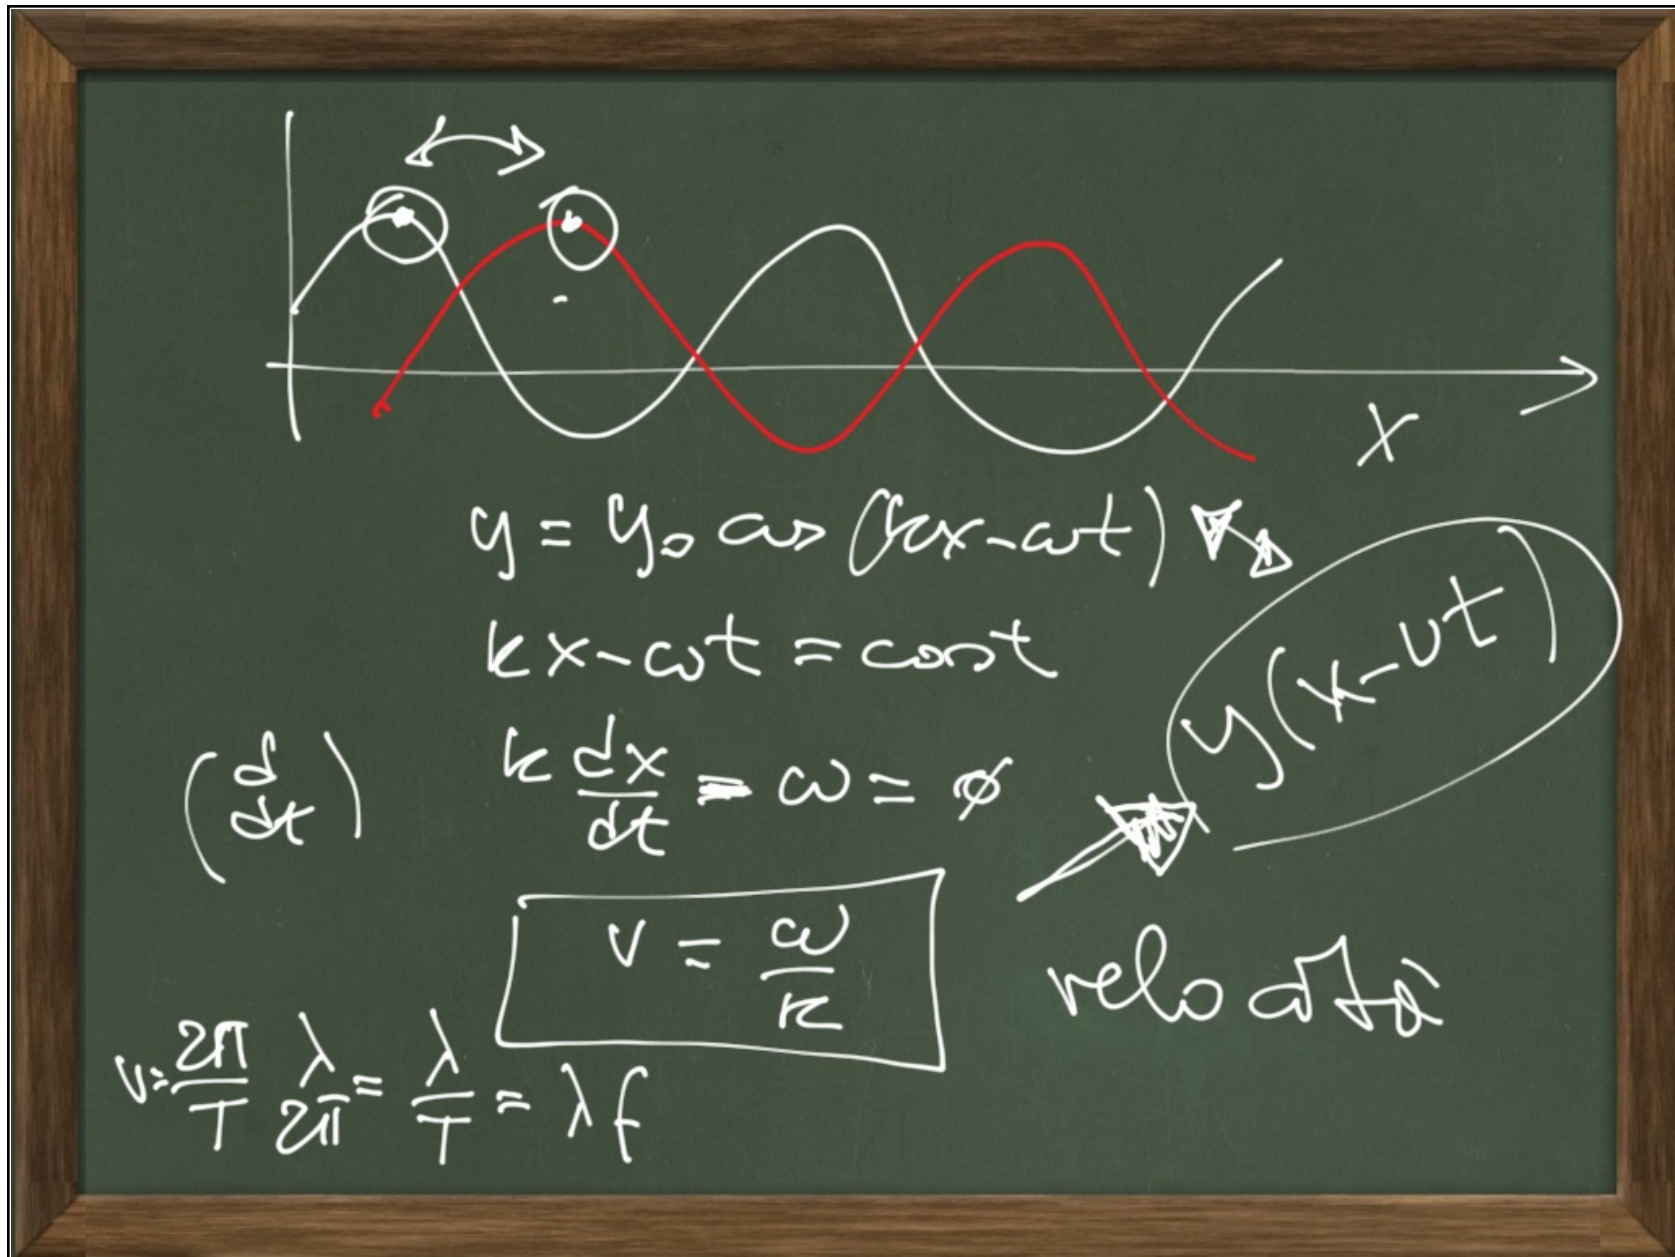 x
y = y₀ cos (kx-ωt)
kx-ωt = cost
y(x-vt)
(d/dt) k dx/dt - ω = ϕ
v = ω/k
velocità
v = 2π/T λ/2π = λ/T = λf